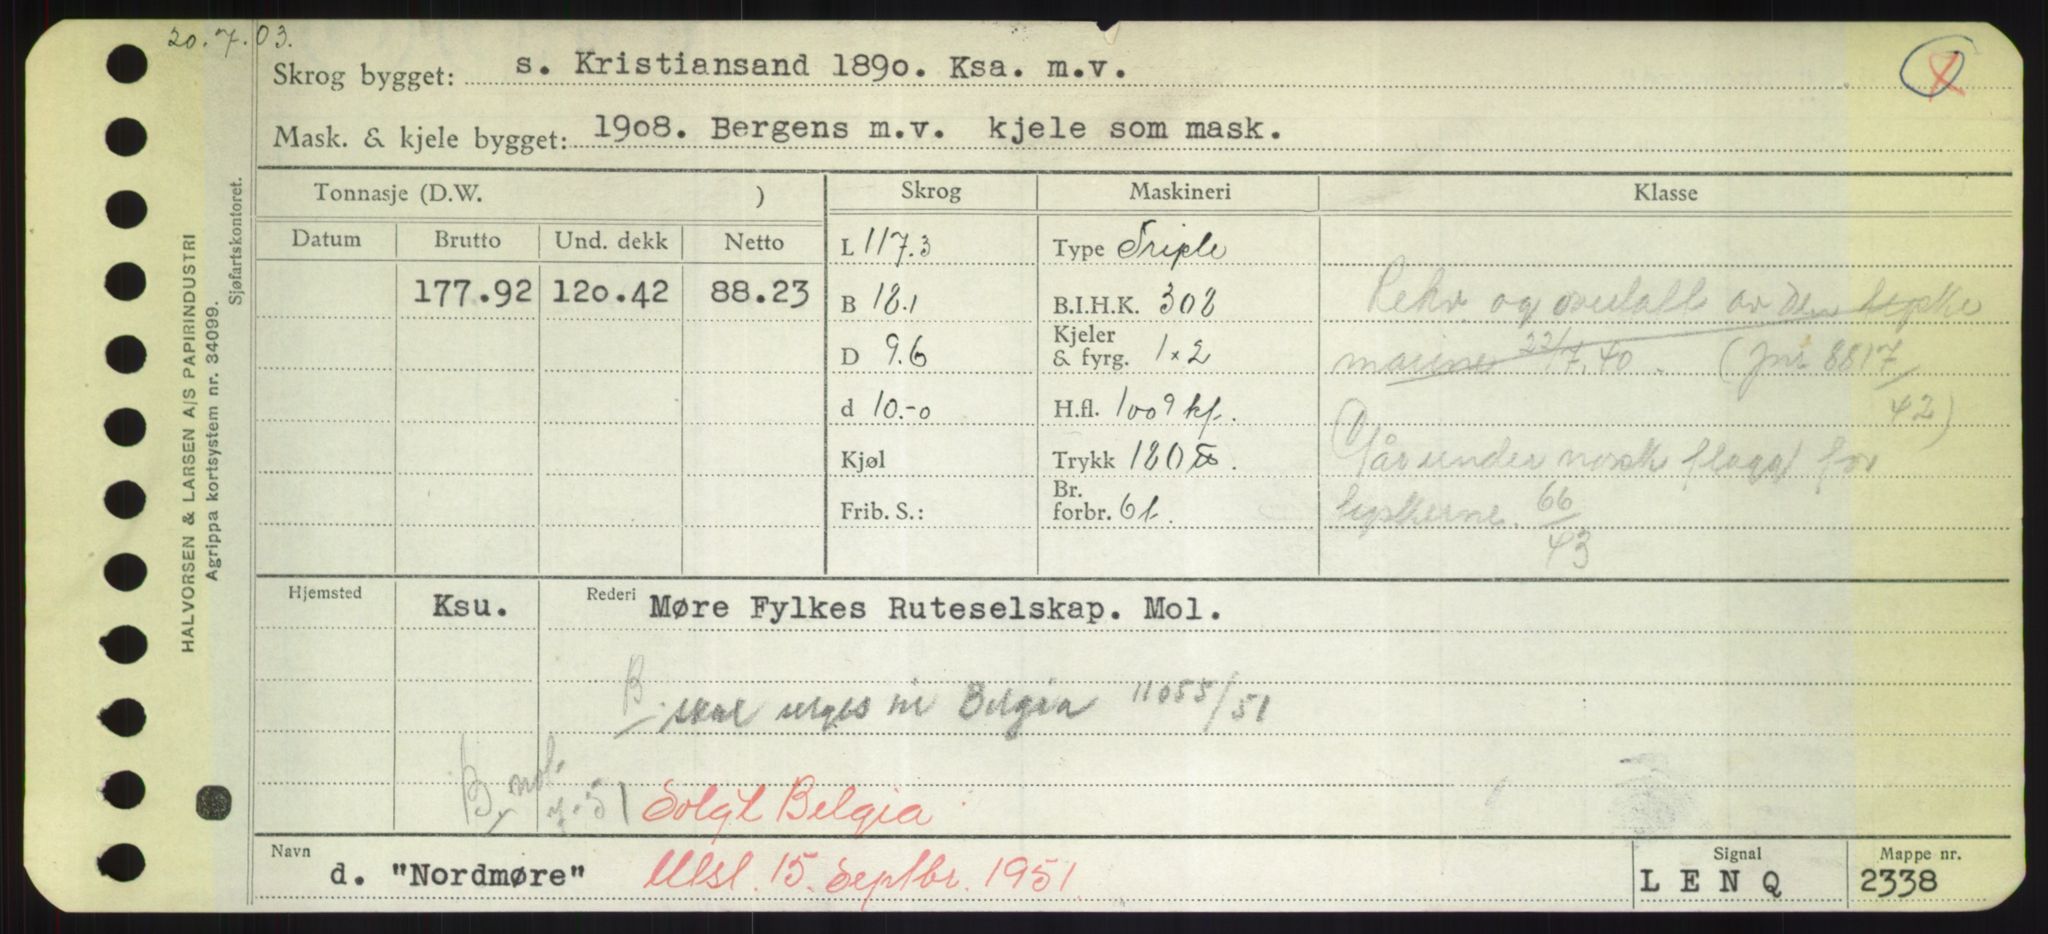 20.7.03.
Skrog bygget: s. Kristiansand 1890. Ksa. m.v.
Mask. & kjele bygget: 1908. Bergens m.v. kjele som mask.
HALVORSEN & LARSEN A/S PAPIRINDUSTRI
Agrippa kortsystem nr. 34099.
Sjøfartskontoret.
Tonnasje (D.W. ) Skrog Maskineri Klasse
Datum Brutto Und. dekk Netto
177.92 120.42 88.23
L 117.3
B 18.1
D 9.6
d 10.-0
Kjøl
Frib. S.:
Type Triple
B.I.H.K. 308
Kjeler
& fyrg. 1x2
H.fl. 1009 kf.
Trykk 180
Br.
forbr. 6t.
Rekv. og overtatt av den tyske
marine 22/7.40. (Jnr 8817/42)
Går under norsk flagg for
tyskerne. 66/43
Hjemsted Ksu. Rederi Møre Fylkes Ruteselskap. Mol.
B. skal selges til Belgia 11055/51
B, not. Solgt Belgia
Navn d. "Nordmøre" Utsl. 15. Septbr. 1951.
Signal LENQ
Mappe nr. 2338